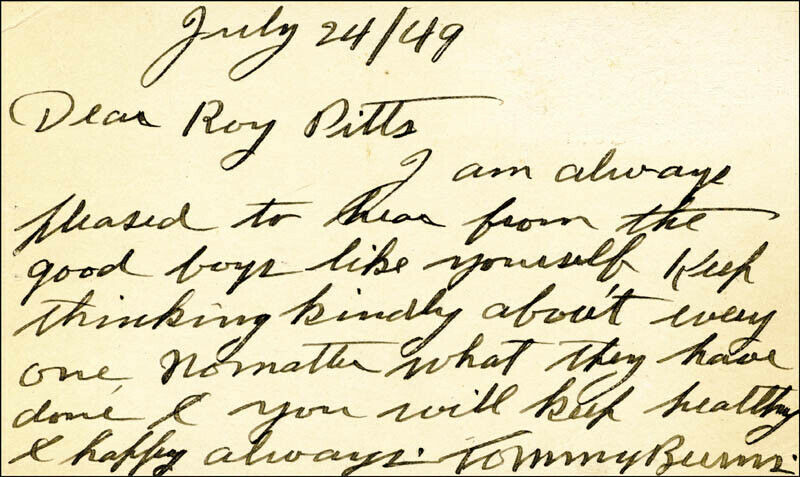 July 24/49
Dear Roy Pitts
I am always
pleased to hear from the
good boys like yourself Keep
thinking kindly about every
one, No matter what they have
done & you will keep healthy
& happy always. Tommy Burns.